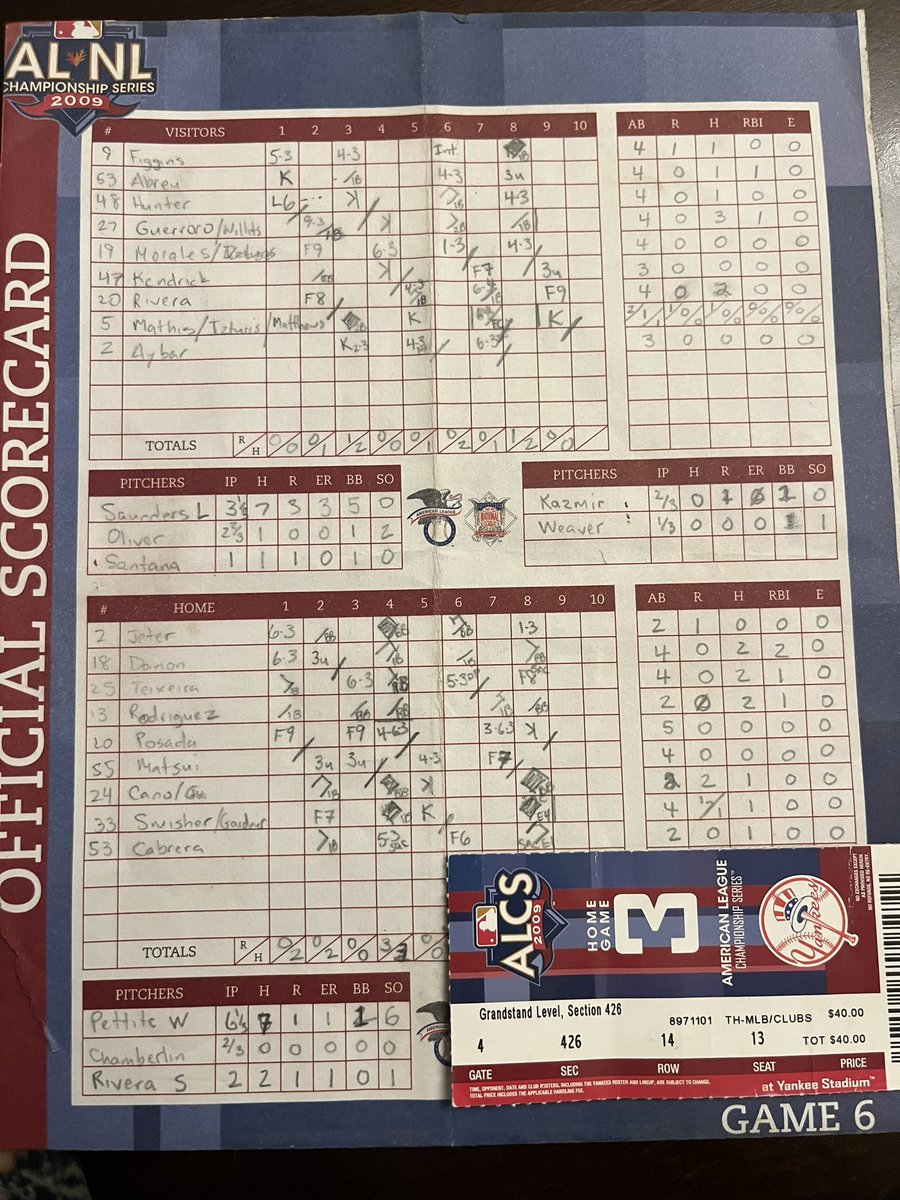 OFFICIAL SCORECARD
AL NL
CHAMPIONSHIP SERIES
2009
# VISITORS 1 2 3 4 5 6 7 8 9 10 AB R H RBI E
9 Figgins 5-3 4-3 Int. 4 1 1 0 0
53 Abreu K 1B 4-3 3u 4 0 1 1 0
48 Hunter L6 K 1B 4-3 4 0 1 0 0
27 Guerroro/Willits 9-3 1B K 2B 1B 4 0 3 1 0
19 Morales/ F9 6-3 1-3 4-3 4 0 0 0 0
47 Kendrick BB K F7 3u 3 0 0 0 0
20 Rivera F8 1B 1B F9 4 0 2 0 0
5 Mathis/Izturis/Matthews 1B K K 2/1 1/0 1/0 0/0 0/0
2 Aybar K2-3 4-3 6-3 3 0 0 0 0
TOTALS R H 0/0 0/1 1/2 0/0 0/1 0/2 0/1 1/2 0/0
PITCHERS IP H R ER BB SO
Saunders L 3⅓ 7 3 3 5 0
Oliver 2⅔ 1 0 0 1 2
Santana 1 1 1 0 1 0
AMERICAN LEAGUE
NATIONAL LEAGUE
PITCHERS IP H R ER BB SO
Kazmir 2/3 0 1 0 1 0
Weaver 1/3 0 0 0 1 1
# HOME 1 2 3 4 5 6 7 8 9 10 AB R H RBI E
2 Jeter 6-3 BB BB BB 1-3 2 1 0 0 0
18 Damon 6-3 3u 1B 1B BB 4 0 2 2 0
25 Teixeira 1B 6-3 BB 5-3 DP F8 SAC 4 0 2 1 0
13 Rodriguez 1B BB BB 1B BB 2 0 2 1 0
20 Posada F9 F9 4-63 3-63 K 5 0 0 0 0
55 Matsui 3u 3u 4-3 F7 4 0 0 0 0
24 Cano/ 1B BB K BB 2 2 1 0 0
33 Swisher/Gardner F7 1B K E4 4 1/1 1 0 0
53 Cabrera 1B 5-3 SAC F6 SAC E 2 0 1 0 0
TOTALS R H 0/2 0/2 0/0 3/3 0/0
PITCHERS IP H R ER BB SO
Pettite W 6⅓ 7 1 1 1 6
Chamberlin 2/3 0 0 0 0 0
Rivera S 2 2 1 1 0 1
ALCS
2009
HOME
GAME
3
AMERICAN LEAGUE
CHAMPIONSHIP SERIES™
Yankees
NO EXCHANGES EXCEPT
AS PROVIDED HEREIN.
NO REFUNDS, NO RE-ENTRY.
Grandstand Level, Section 426
8971101 TH-MLB/CLUBS $40.00
4 426 14 13 TOT $40.00
GATE SEC ROW SEAT PRICE
TIME, OPPONENT, DATE AND CLUB ROSTERS, INCLUDING THE YANKEES ROSTER AND LINEUP, ARE SUBJECT TO CHANGE.
TOTAL PRICE INCLUDES THE APPLICABLE HANDLING FEE.
at Yankee Stadium™
GAME 6